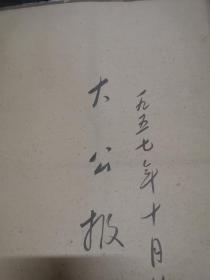 一九五七年十月
大公报